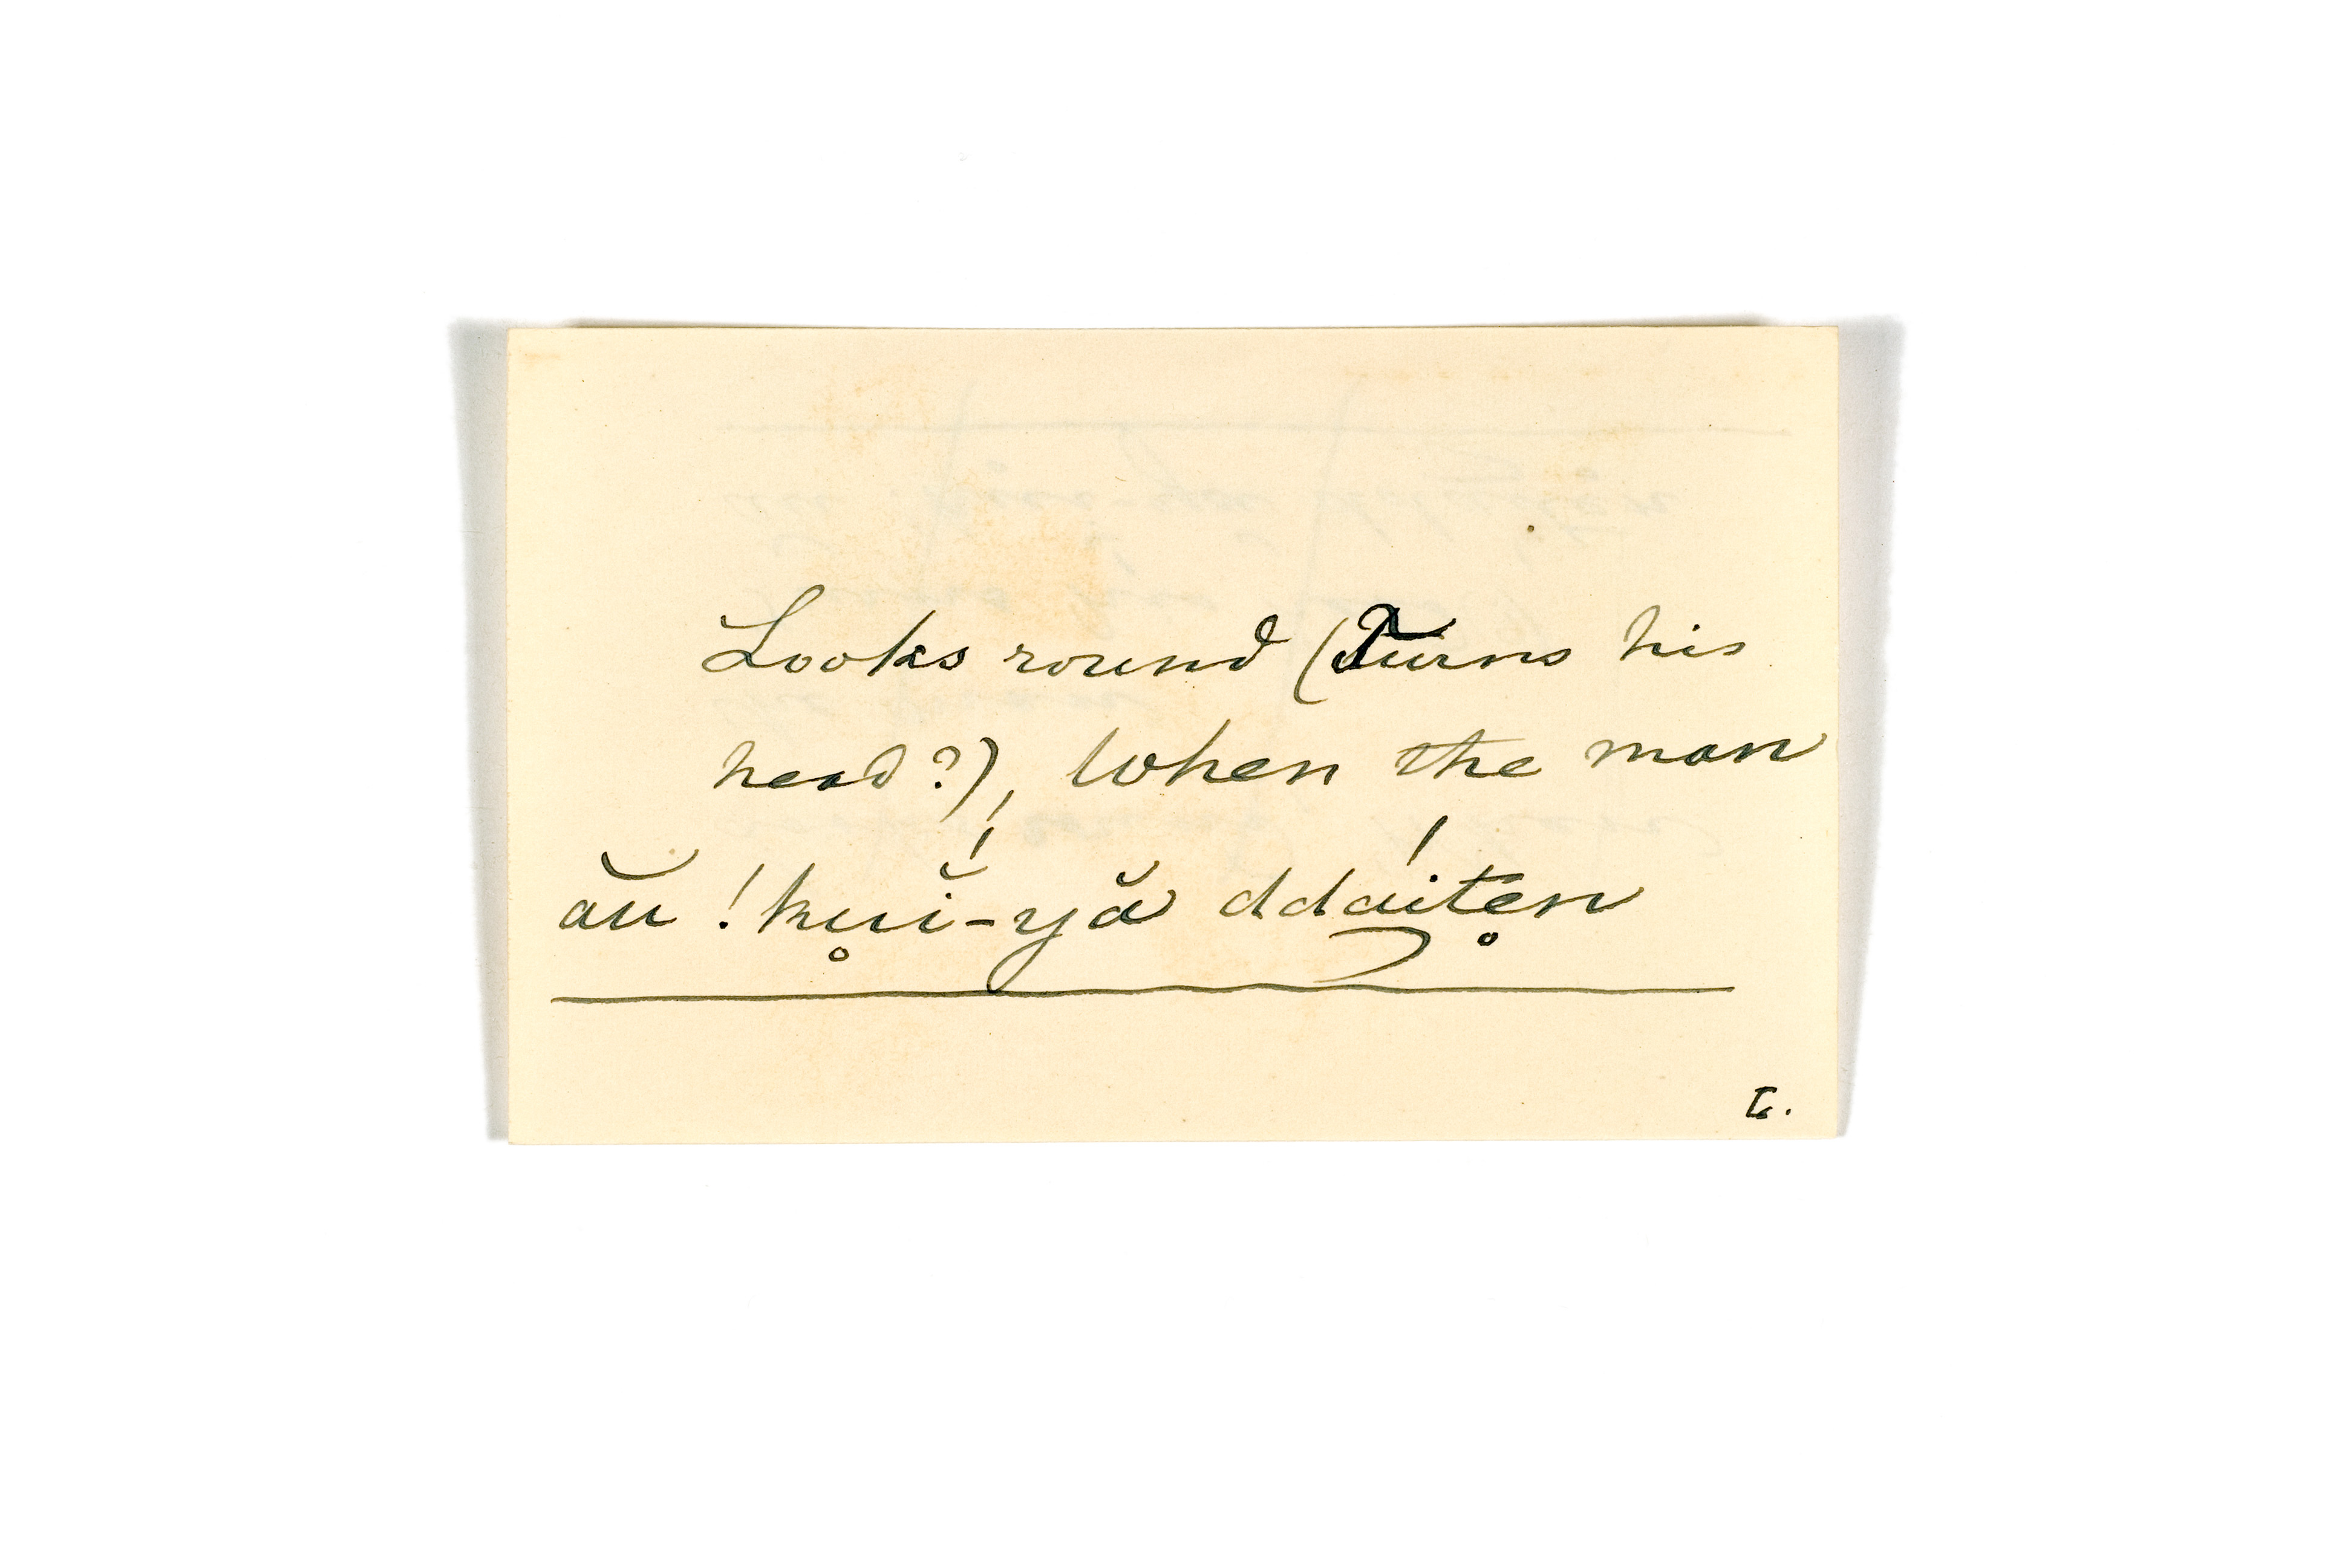 Looks round (Turns his
head?), When the man
ău !kụĭ-yă ddáitẹn
L.